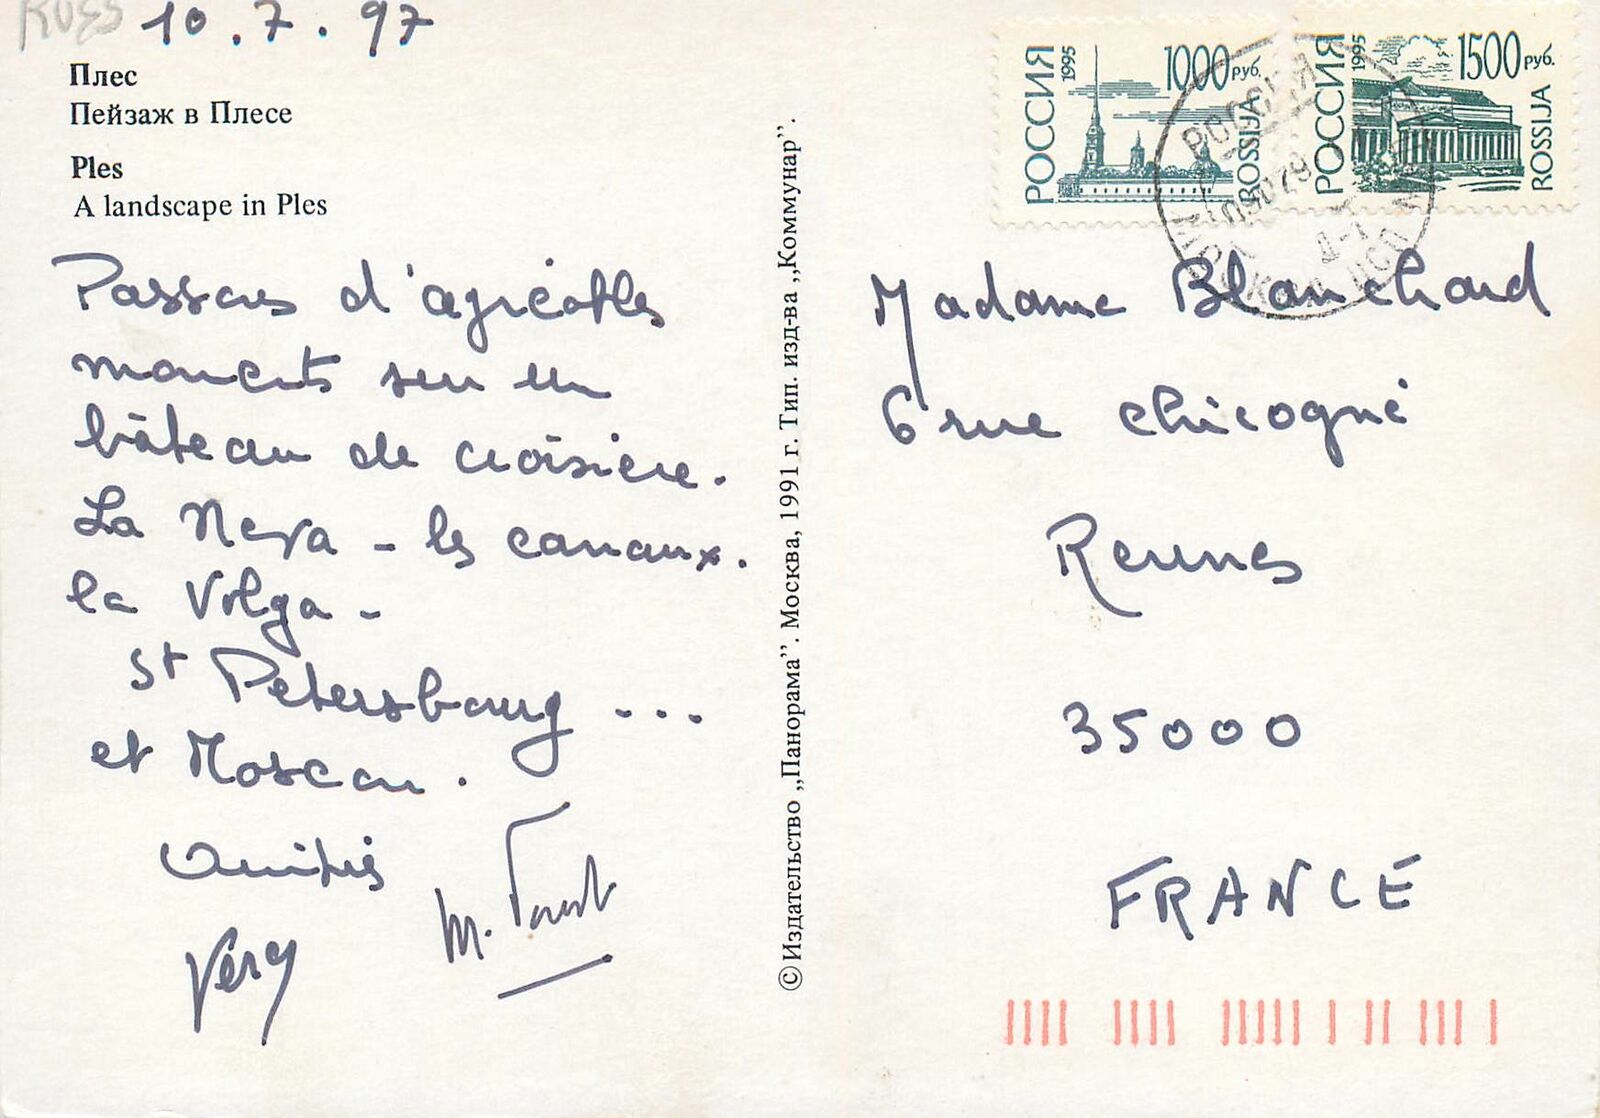 10.7.97
Плес
Пейзаж в Плесе
Ples
A landscape in Ples
Passons d'agréables
moments sur un
bâteau de croisière.
La Neva - les canaux.
la Volga -
St Petersbourg ...
et Moscou.
Amitiés
Very
M.
©Издательство „Панорама”. Москва, 1991 г. Тип. изд-ва „Коммунар”.
РОССИЯ 1995 1000 РУБ. ROSSIJA
РОССИЯ 1995 1500 РУБ. ROSSIJA
РОССИЯ
Madame Blanchard
6 rue Chicogné
Rennes
35000
FRANCE